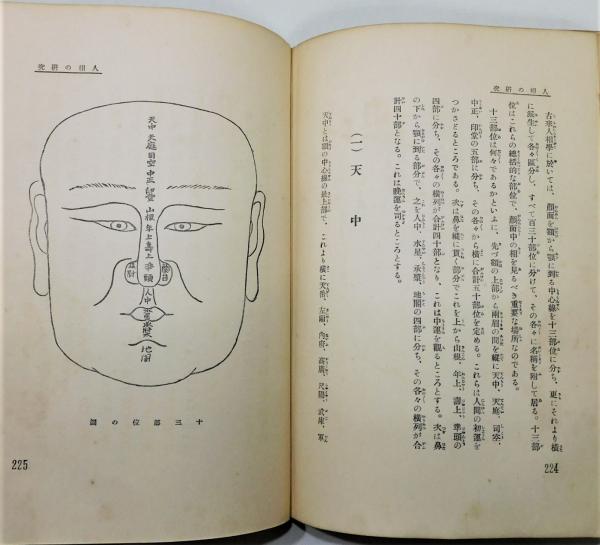 人相の研究
古來人相學に於いては、顏面を額から顎に到る中心線を十三部位に分ち、更にそれより橫
に派生して各々區分し、すべて百三十部位に分けて、その各々に名稱を附して居る。十三部
位はこれらの總括的な部位で、顏面中の相を見るべき重要な場所なのである。
十三部位は何々であるかといふに、先づ額の上部から兩眉の間を縱に天中、天庭、司空、
中正、印堂の五部に分ち、その各々から橫に合計五十部位を定める。これらは人間の初運を
つかさどるところである。次は鼻を縱に貫く部分でこれを上から山根、年上、壽上、準頭の
四部に分ち、その各々の橫列が合計四十部となり、これは中運を觀るところとする。次は鼻
の下から顎に到る部分で、之を人中、水星、承漿、地閣の四部に分ち、その各々の橫列が合
計四十部となる。これは晩運を司るところとする。
(一) 天中
天中とは額の中心線の最上部で、これより橫に天岳、左廂、內府、高廣、尺陽、武庫、軍
224
人相の研究
天中 天庭 司空 中正 印堂 山根 年上 壽上 準頭
人中
水星
承漿
地閣
十三部位の圖
225